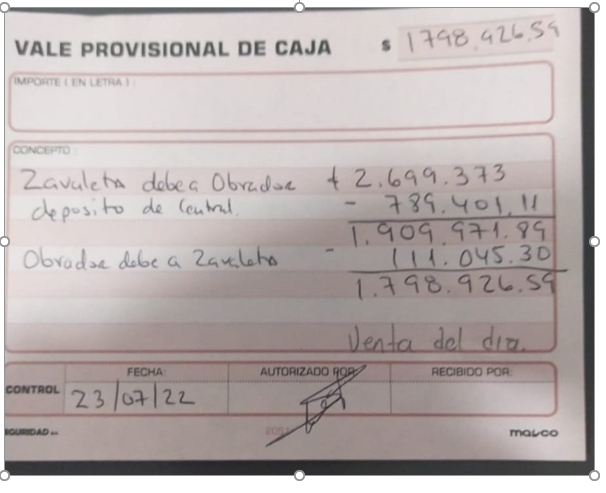 VALE PROVISIONAL DE CAJA $ 1798.926.59
IMPORTE ( EN LETRA )
CONCEPTO
Zavaleta debe a Obrador + 2.699.373
deposito de Central. - 789.401.11
1.909.971.89
Obrador debe a Zavaleta - 111.045.30
1.798.926.59
Venta del dia.
FECHA: AUTORIZADO POR: RECIBIDO POR:
CONTROL 23/07/22
malco